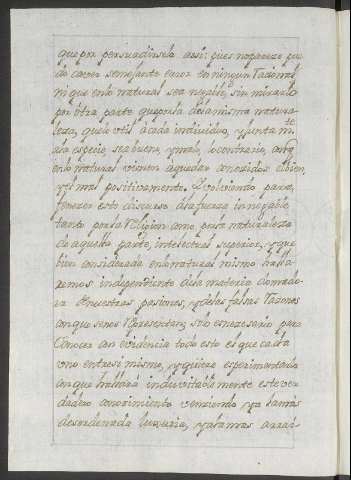 que por persuadirsela assi: pues no parece pue
de caver semejante error en ningun Racional
ni que en lo natural sea negable, sin mirarlo
por otra parte que por la dela misma natura
leza, que lo util a cada individuo, y junta mte
ala especie, sea bueno, y malo lo contrario, conq
en lo natural vienen a quedar conocidos el bien,
y el mal positivamente. Y volviendo para
fenecer este discurso ala fuerza innegable
tanto por la Religion como por la naturaleza
de aquella parte, intelectual superior, y que
bien considerada en lo natural mismo halla
remos independiente dela materia Domado
ra de nuestras pasiones, y de las falsas Razones
con que se nos Representan, solo es necesario para
Conocer con evidencia todo esto el que cada
uno entre si mismo, y quiera esperimentarlo
con que hallará indubitable mente este ver
dadero conocimiento venciendo ya la mas
desordenada luxuria, y ya la mas arrai